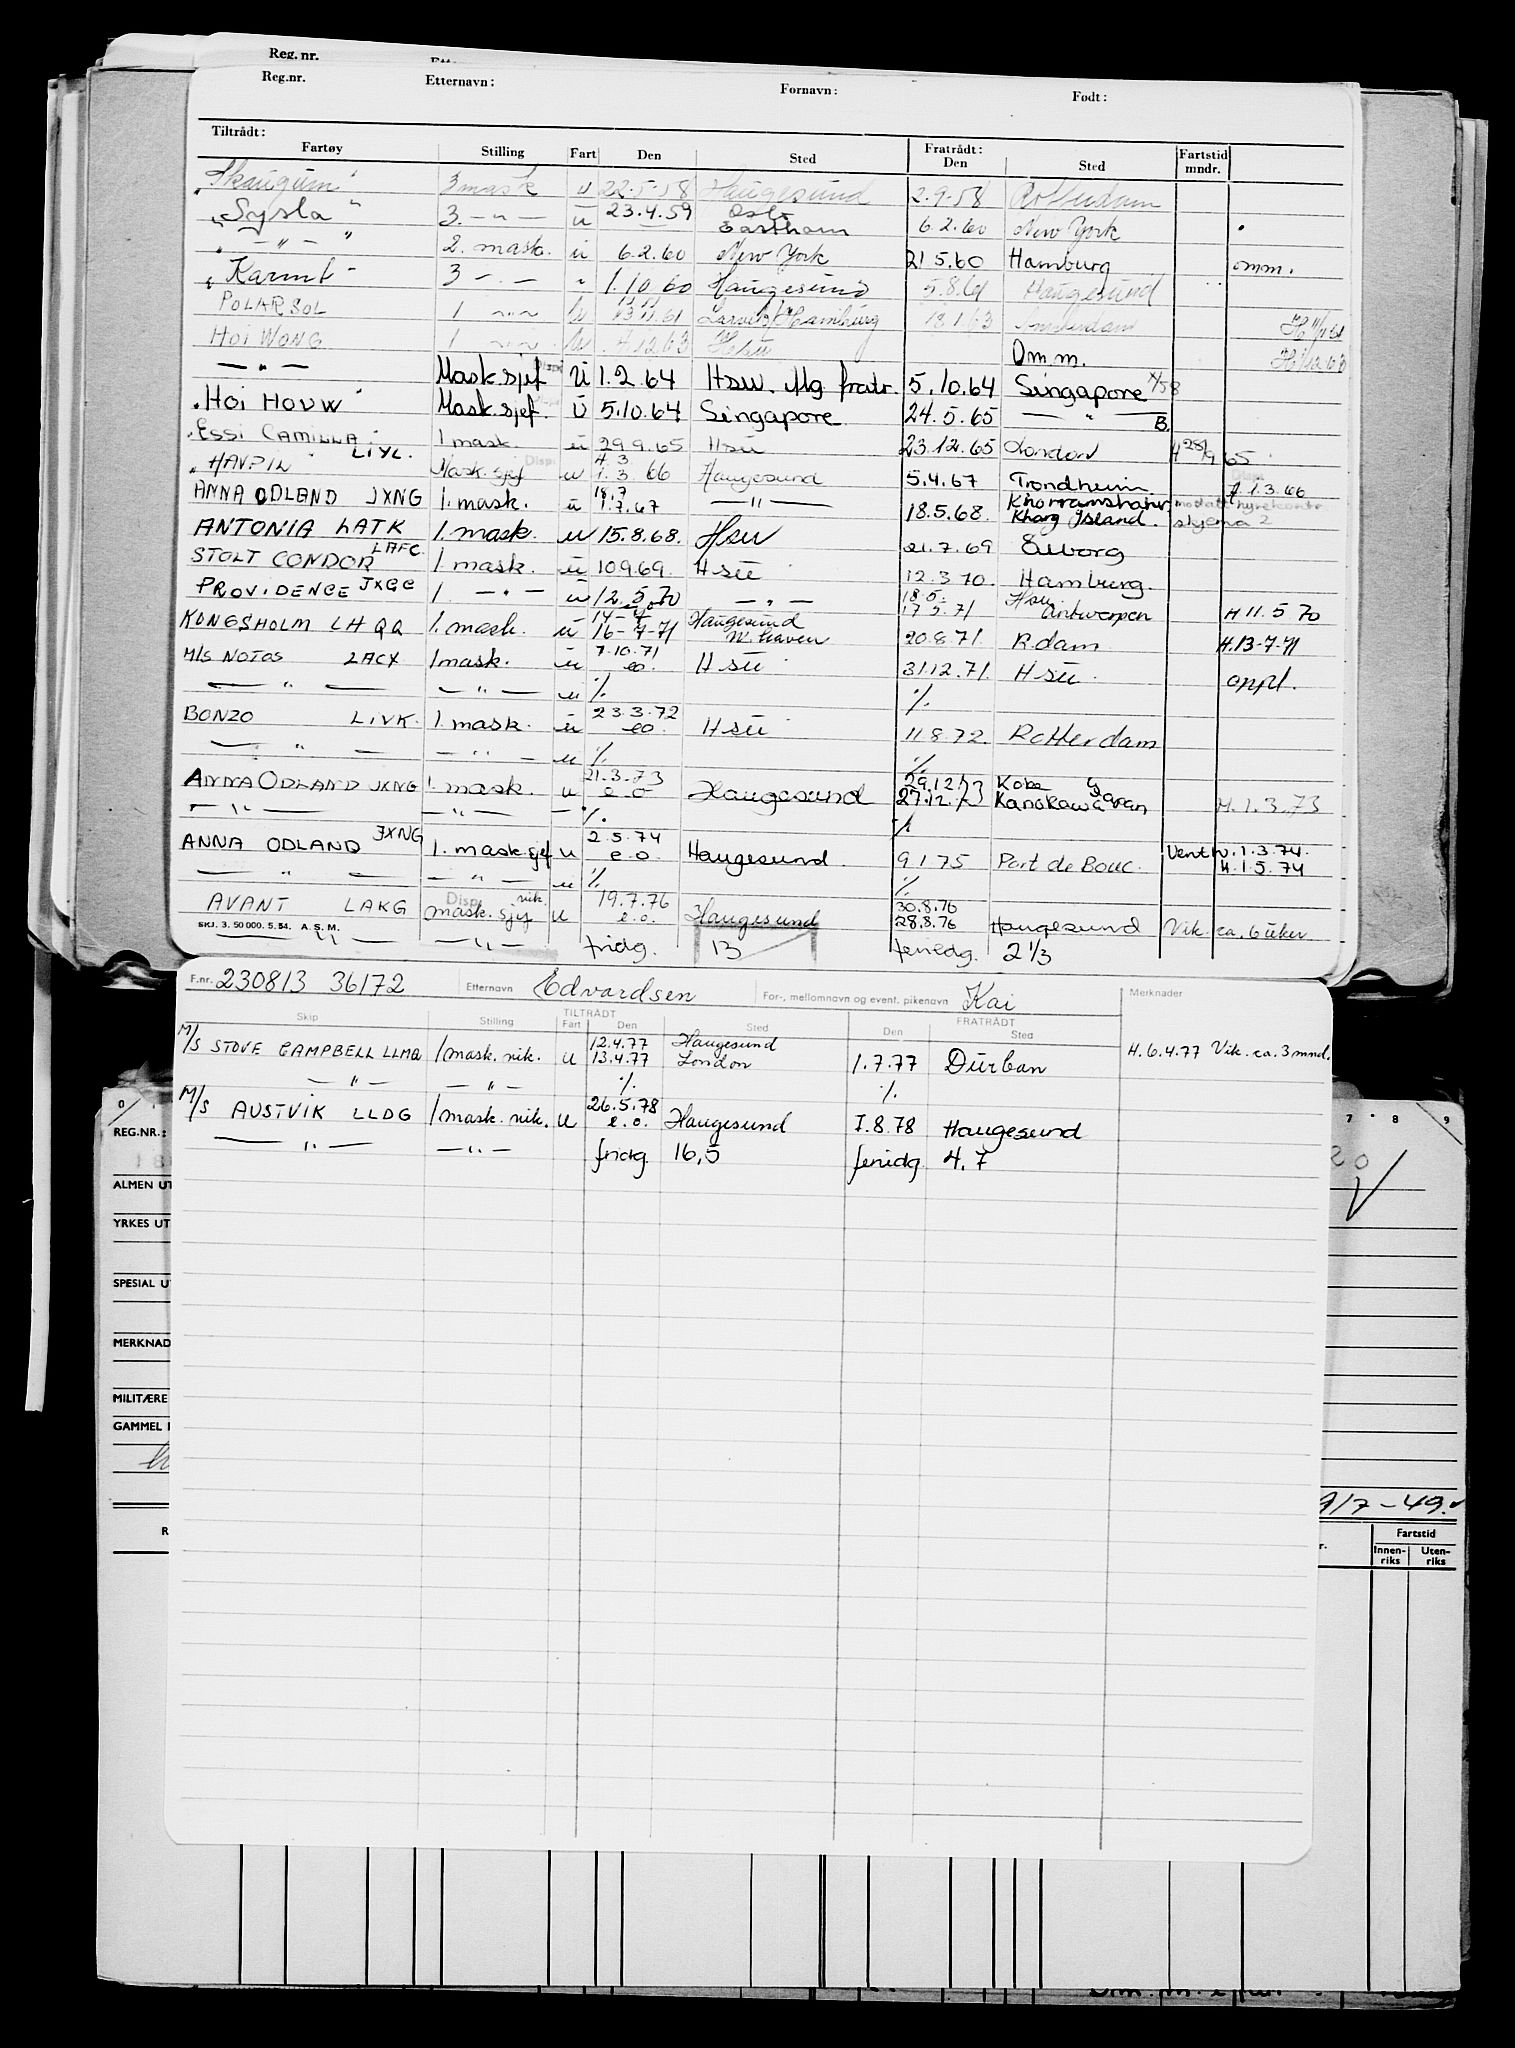 Reg. nr.
Reg.nr. Etternavn: Fornavn: Født:
Tiltrådt: Fratrådt: Fartstid
Fartøy Stilling Fart Den Sted Den Sted mndr.
"Skaugum" 3 mask u 22.5.58 Haugesund 2.9.58 Rotterdam
"Sysla" 3. -"- ü 23.4.59 Oslo Eastham 6.2.60 New York
" -"- " 2. mask. ü 6.2.60 New York 21 5.60 Hamburg omm.
"Karmt" 3 -.- " 1.10 60 Haugesund 5.8.61 Haugesund
POLARSOL 1 -"- u 13.11.61 Larvik/Hamburg 18.1.63 Amsterdam
HOI WONG 1 -"- u 4.12.63 Hsu Omm.
-"- Mask.sjef Ü 1.2.64 Hsu. Mg. fratr. 5.10.64 Singapore
"HOI HOUW" Mask.sjef. Ü 5.10.64 Singapore 24.5.65 -"- B.
"ESSI CAMILLA" LIYL. 1 mask. ü 29 9.65 Hsü 23.12.65 London H 28/9 65
"HAVPIL" Mask.sjef Disp. u 4.3. 1.3.66 Haugesund 5.4.67 Trondheim 1.3.66
ANNA ODLAND JXNG 1. mask. ü 18.7 1.7.67 -"- 18.5.68. Khorramshahr Kharg Island. skjema 2
ANTONIA LATK 1. mask. u 15.8.68. Hsu 21.7.69
STOLT CONDOR LAFC. 1 mask. ü 10969. Hsü 12.3 70. Hamburg.
PROVIDENCE JXGC 1. -"- ü 12.5.70 -"- 18.5. 17.5.71 Hsu Antwerpen H 11.5 70
KONGSHOLM LHQQ 1. mask. ü 14-7 16-7-71 Haugesund W. haven 20.8.71. R.dam H.13-7-71
M/S NOTOS LACX 1 mask. ü 7.10.71 eo. Hsü 31.12.71. Hsü. oppl.
-"- -"- u % %
BONZO LIVK. 1. mask. ü 23.3.72 eo. Hsü 11 8.72. Rotterdam
-"- -"- u % %
ANNA ODLAND JXNG 1. mask. u 21.3.73 e.o Haugesund 29.12.73 27.12.73 Kobe Kanokawa Japan H.1.3.73
-"- -"- - % %
ANNA ODLAND JXNG 1. mask sjef u 2.5.74 e.o. Haugesund. 9.1 75 Port de Bouc. Vent. 1.3.74. H.1.5.74
-"- -"- u % %
AVANT LAKG Disp. vik. mask.sjef u 19.7.76 e.o. Haugesund 30.8.76 28.8.76 Haugesund Vik. ca. 6 uker
SKJ. 3. 50 000. 5. 54. A. S. M.
-"- -"- fridg. 13 feriedg. 2 1/3
F.nr. 230813 36172 Etternavn Edvardsen For-, mellomnavn og event. pikenavn Kai Merknader
TILTRÅDT FRATRÅDT
Skip Stilling Fart Den Sted Den Sted
M/S STOVE CAMPBELL LLMQ 1 mask. vik. u 12.4.77 13.4.77 Haugesund London 1.7.77 Durban H. 6.4.77 Vik. ca. 3 mnd.
-"- -"- % %
M/S AUSTVIK LLDG 1 mask. vik. u 26.5.78 e.o. Haugesund 1.8.78 Haugesund
-"- -"- fridg. 16,5 feriedg. 4,7
0 7 8 9
REG.NR.:
ALMEN UT
YRKES UT
SPESIAL U
MERKNAD
MILITÆRE
GAMMEL
7-49.
R Fartstid
Innenriks Utenriks